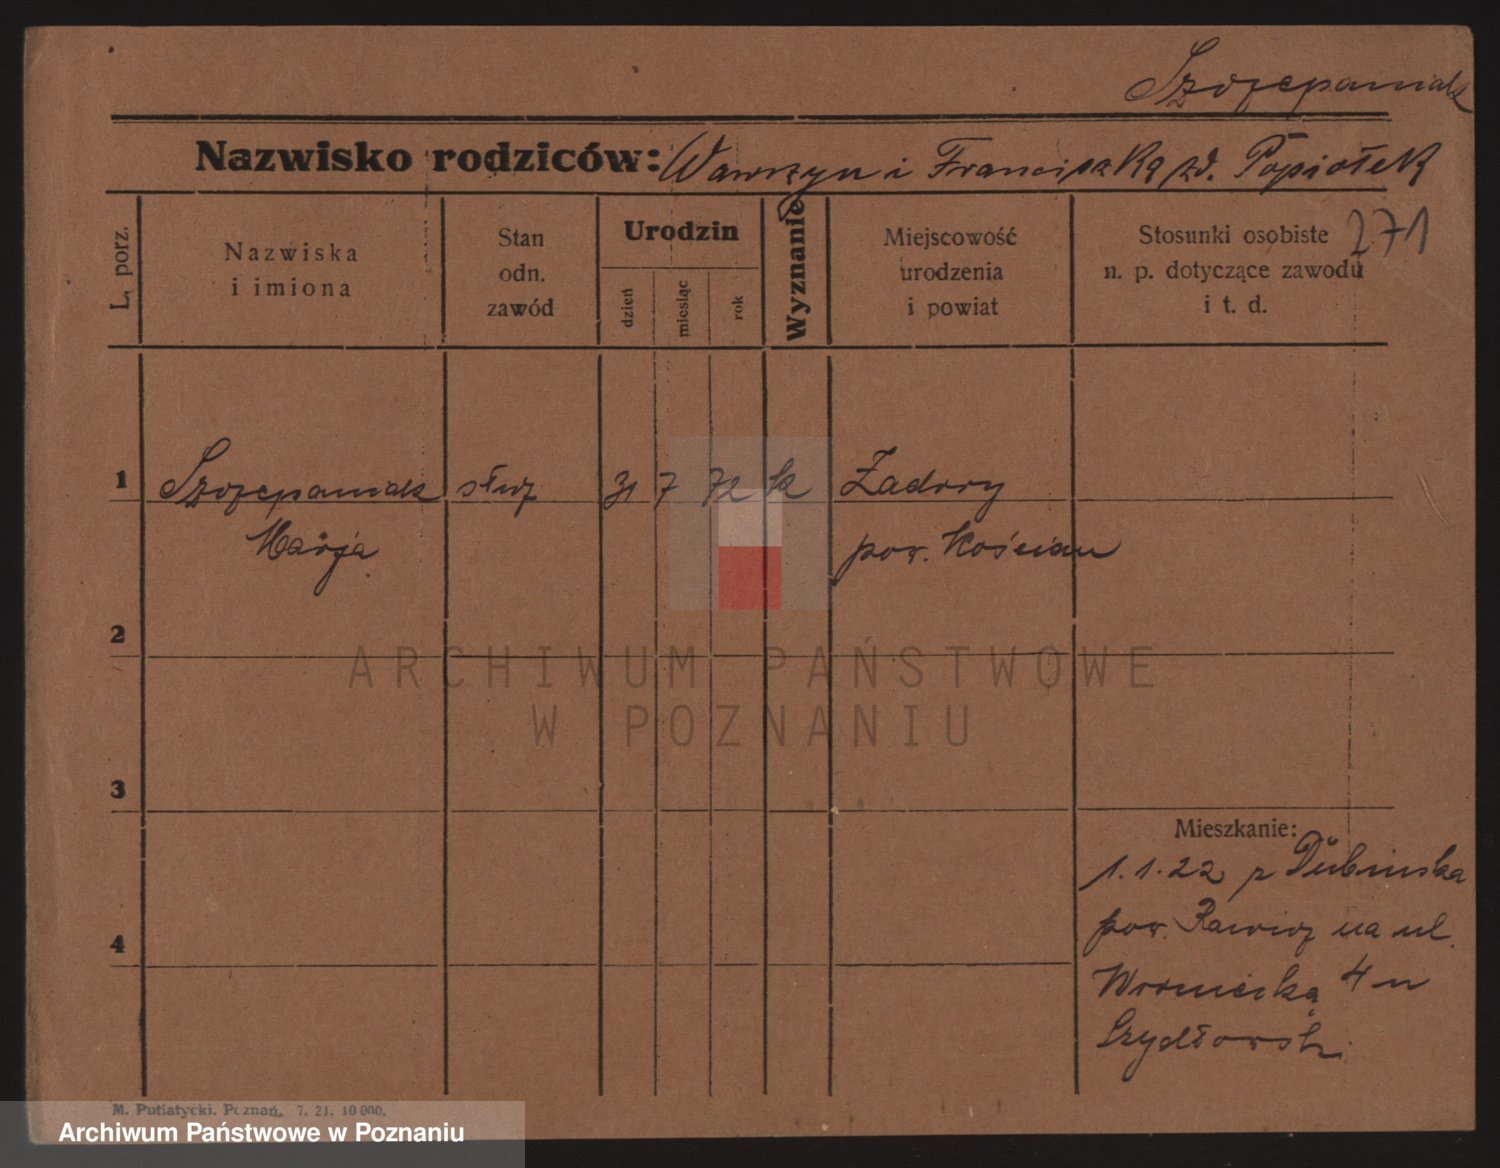 Szczepaniak
Nazwisko rodziców: Wawrzyn i Franciszka zd. Popiołek
271
L. porz.
Nazwiska
i imiona
Stan
odn.
zawód
Urodzin
dzień
miesiąc
rok
Wyznanie
Miejscowość
urodzenia
i powiat
Stosunki osobiste
n. p. dotyczące zawodu
i t. d.
1 Szczepaniak służ 31 7 72 k Zadory
Marja pow. Kościan
2
3
4
Mieszkanie:
1.1.22 z Dubinska
pow. Rawicz na ul.
Wroniecką 4 u
Szydłowsk.
ARCHIWUM PAŃSTWOWE
W POZNANIU
M. Putiatycki. Poznań. 7. 21. 10 000.
Archiwum Państwowe w Poznaniu